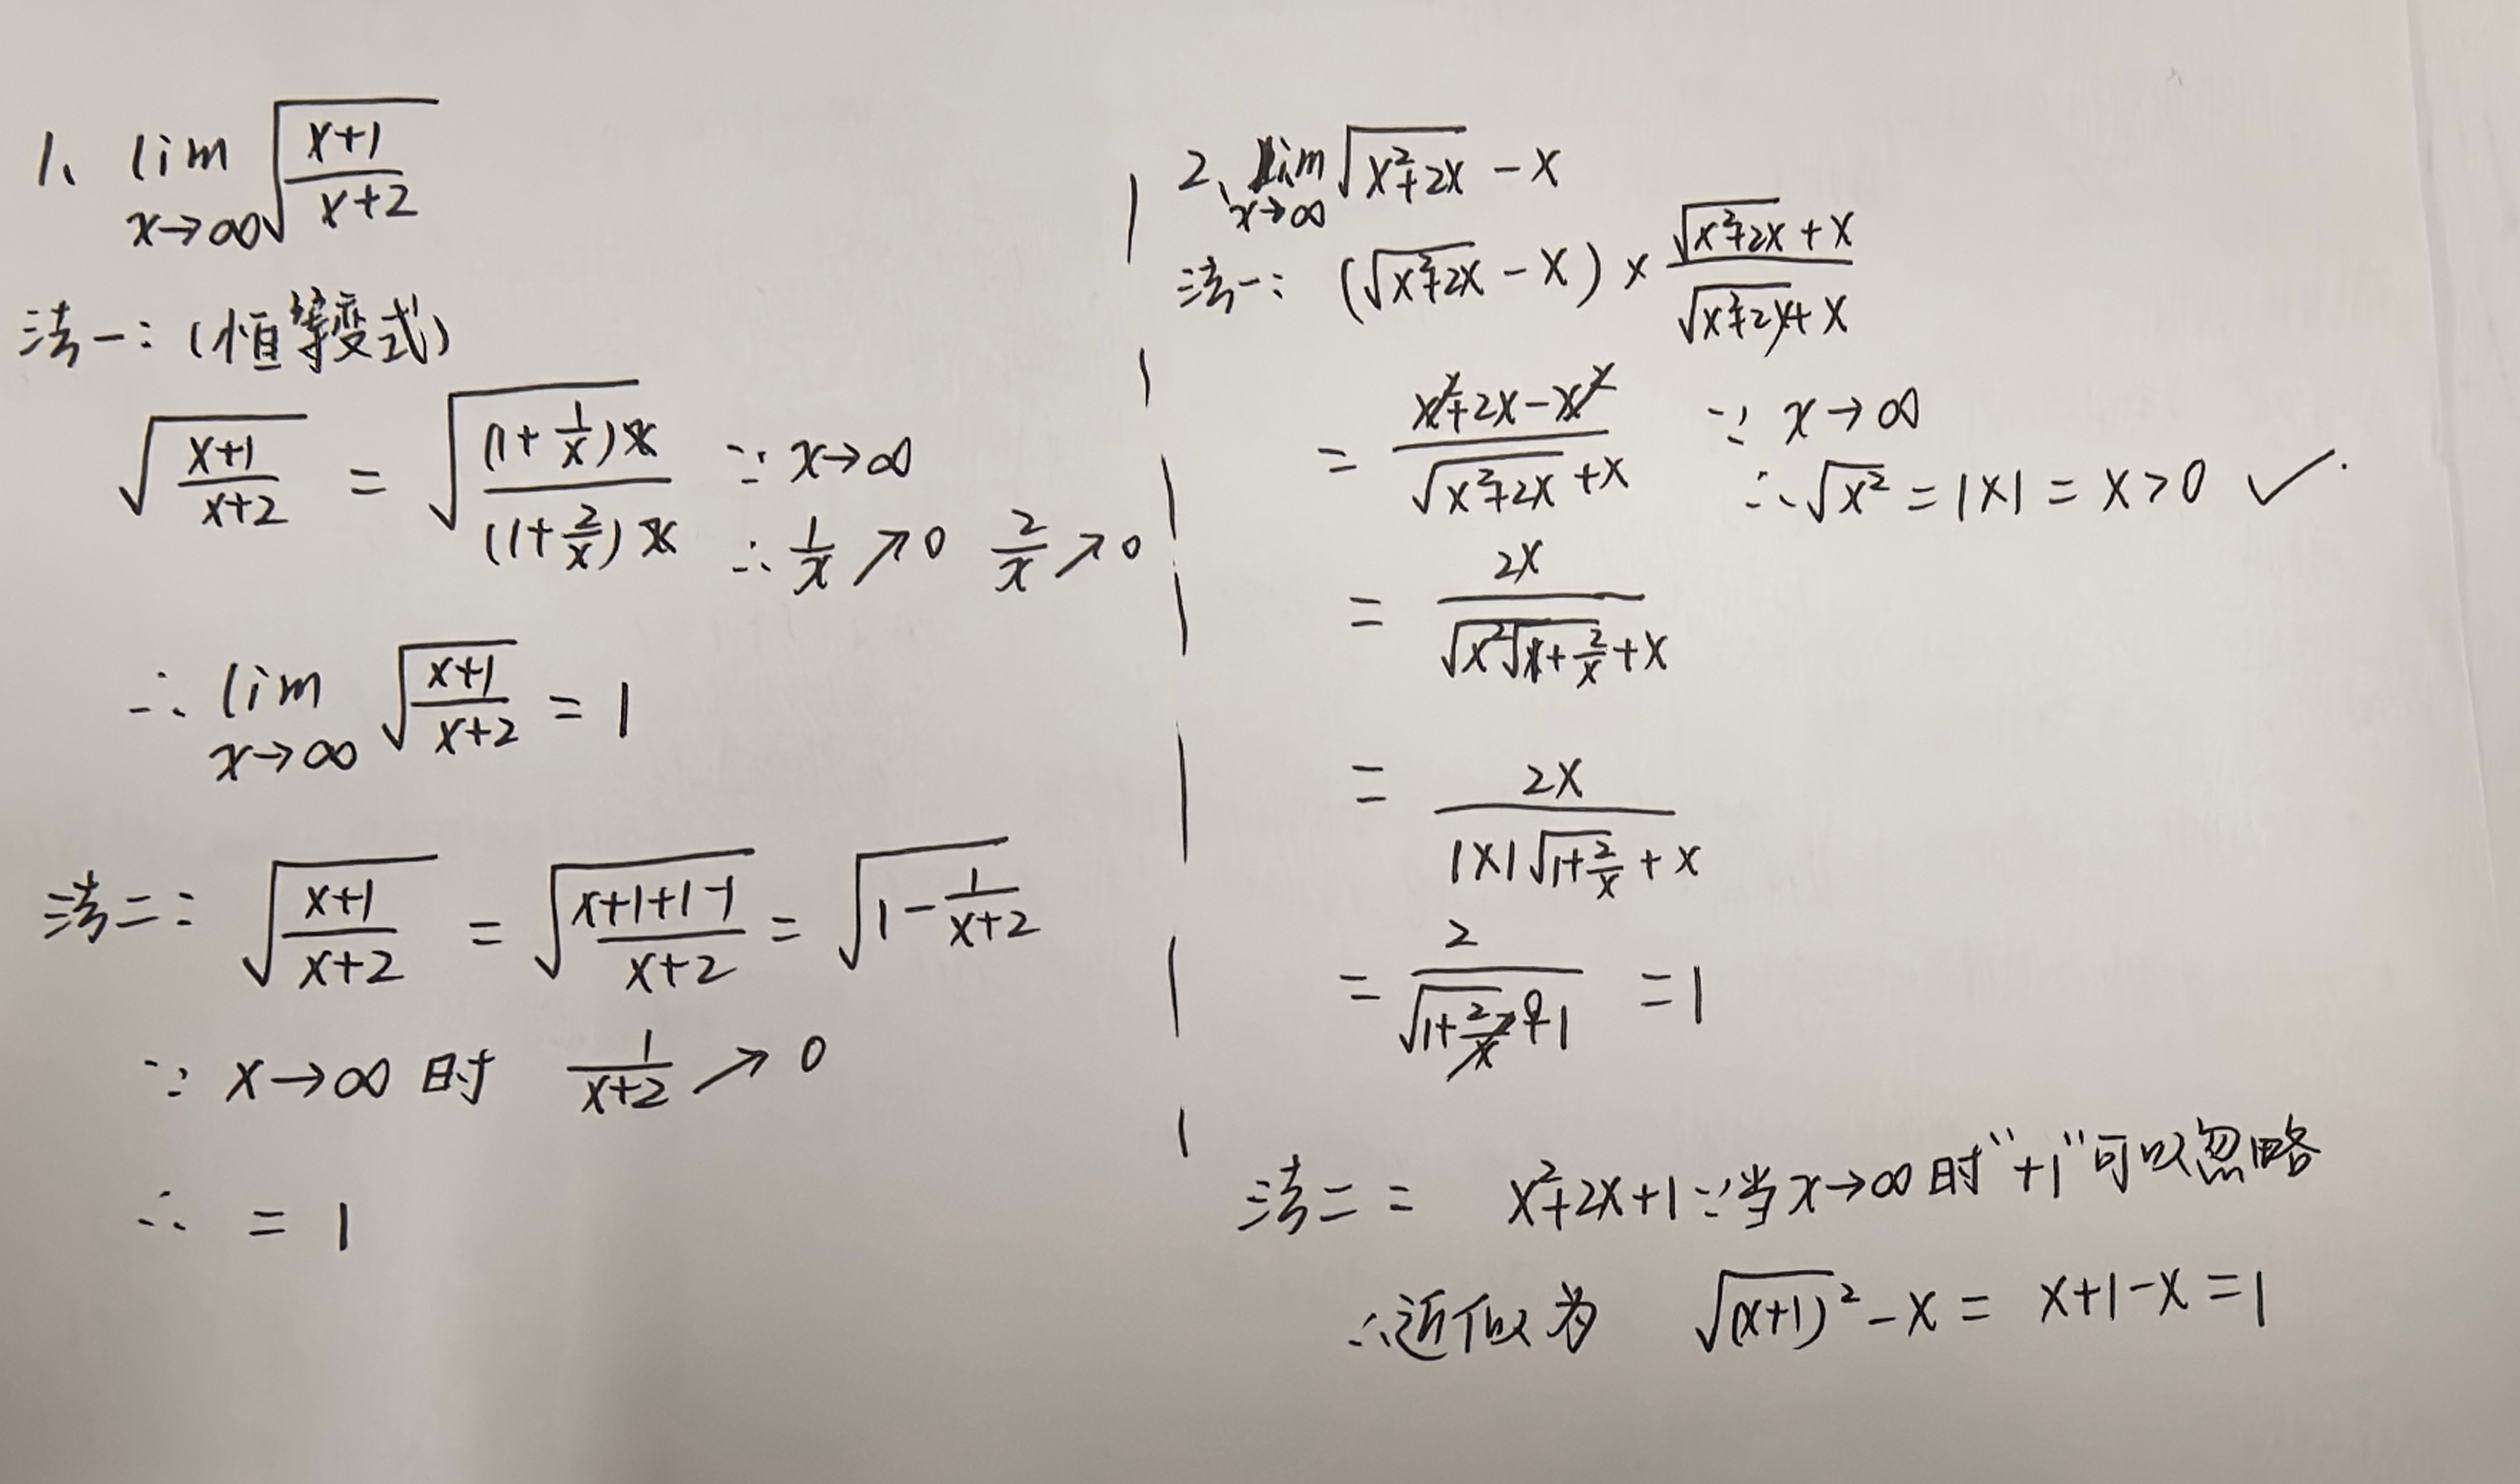 1、 lim x→∞ √((x+1)/(x+2))
法一：（恒等变式）
√((x+1)/(x+2)) = √(((1+1/x)x)/((1+2/x)x)) ∵ x→∞
∴ 1/x ↗0 2/x ↗0
∴ lim x→∞ √((x+1)/(x+2)) = 1
法二： √((x+1)/(x+2)) = √((x+1+1-1)/(x+2)) = √(1-1/(x+2))
∵ x→∞ 时 1/(x+2) ↗ 0
∴ = 1
2、 lim x→∞ √(x²+2x) - x
法一： (√(x²+2x) - x) × (√(x²+2x) + x)/(√(x²+2x) + x)
= (x²+2x-x²)/(√(x²+2x) + x) ∵ x→∞
∴ √x² = |x| = x > 0 ✓
= 2x/(√x² √(1+2/x) + x)
= 2x/(|x| √(1+2/x) + x)
= 2/(√(1+2/x) + 1) = 1
0
法二 = x²+2x+1 ∵当 x→∞ 时“+1”可以忽略
∴近似为 √(x+1)² - x = x+1-x = 1